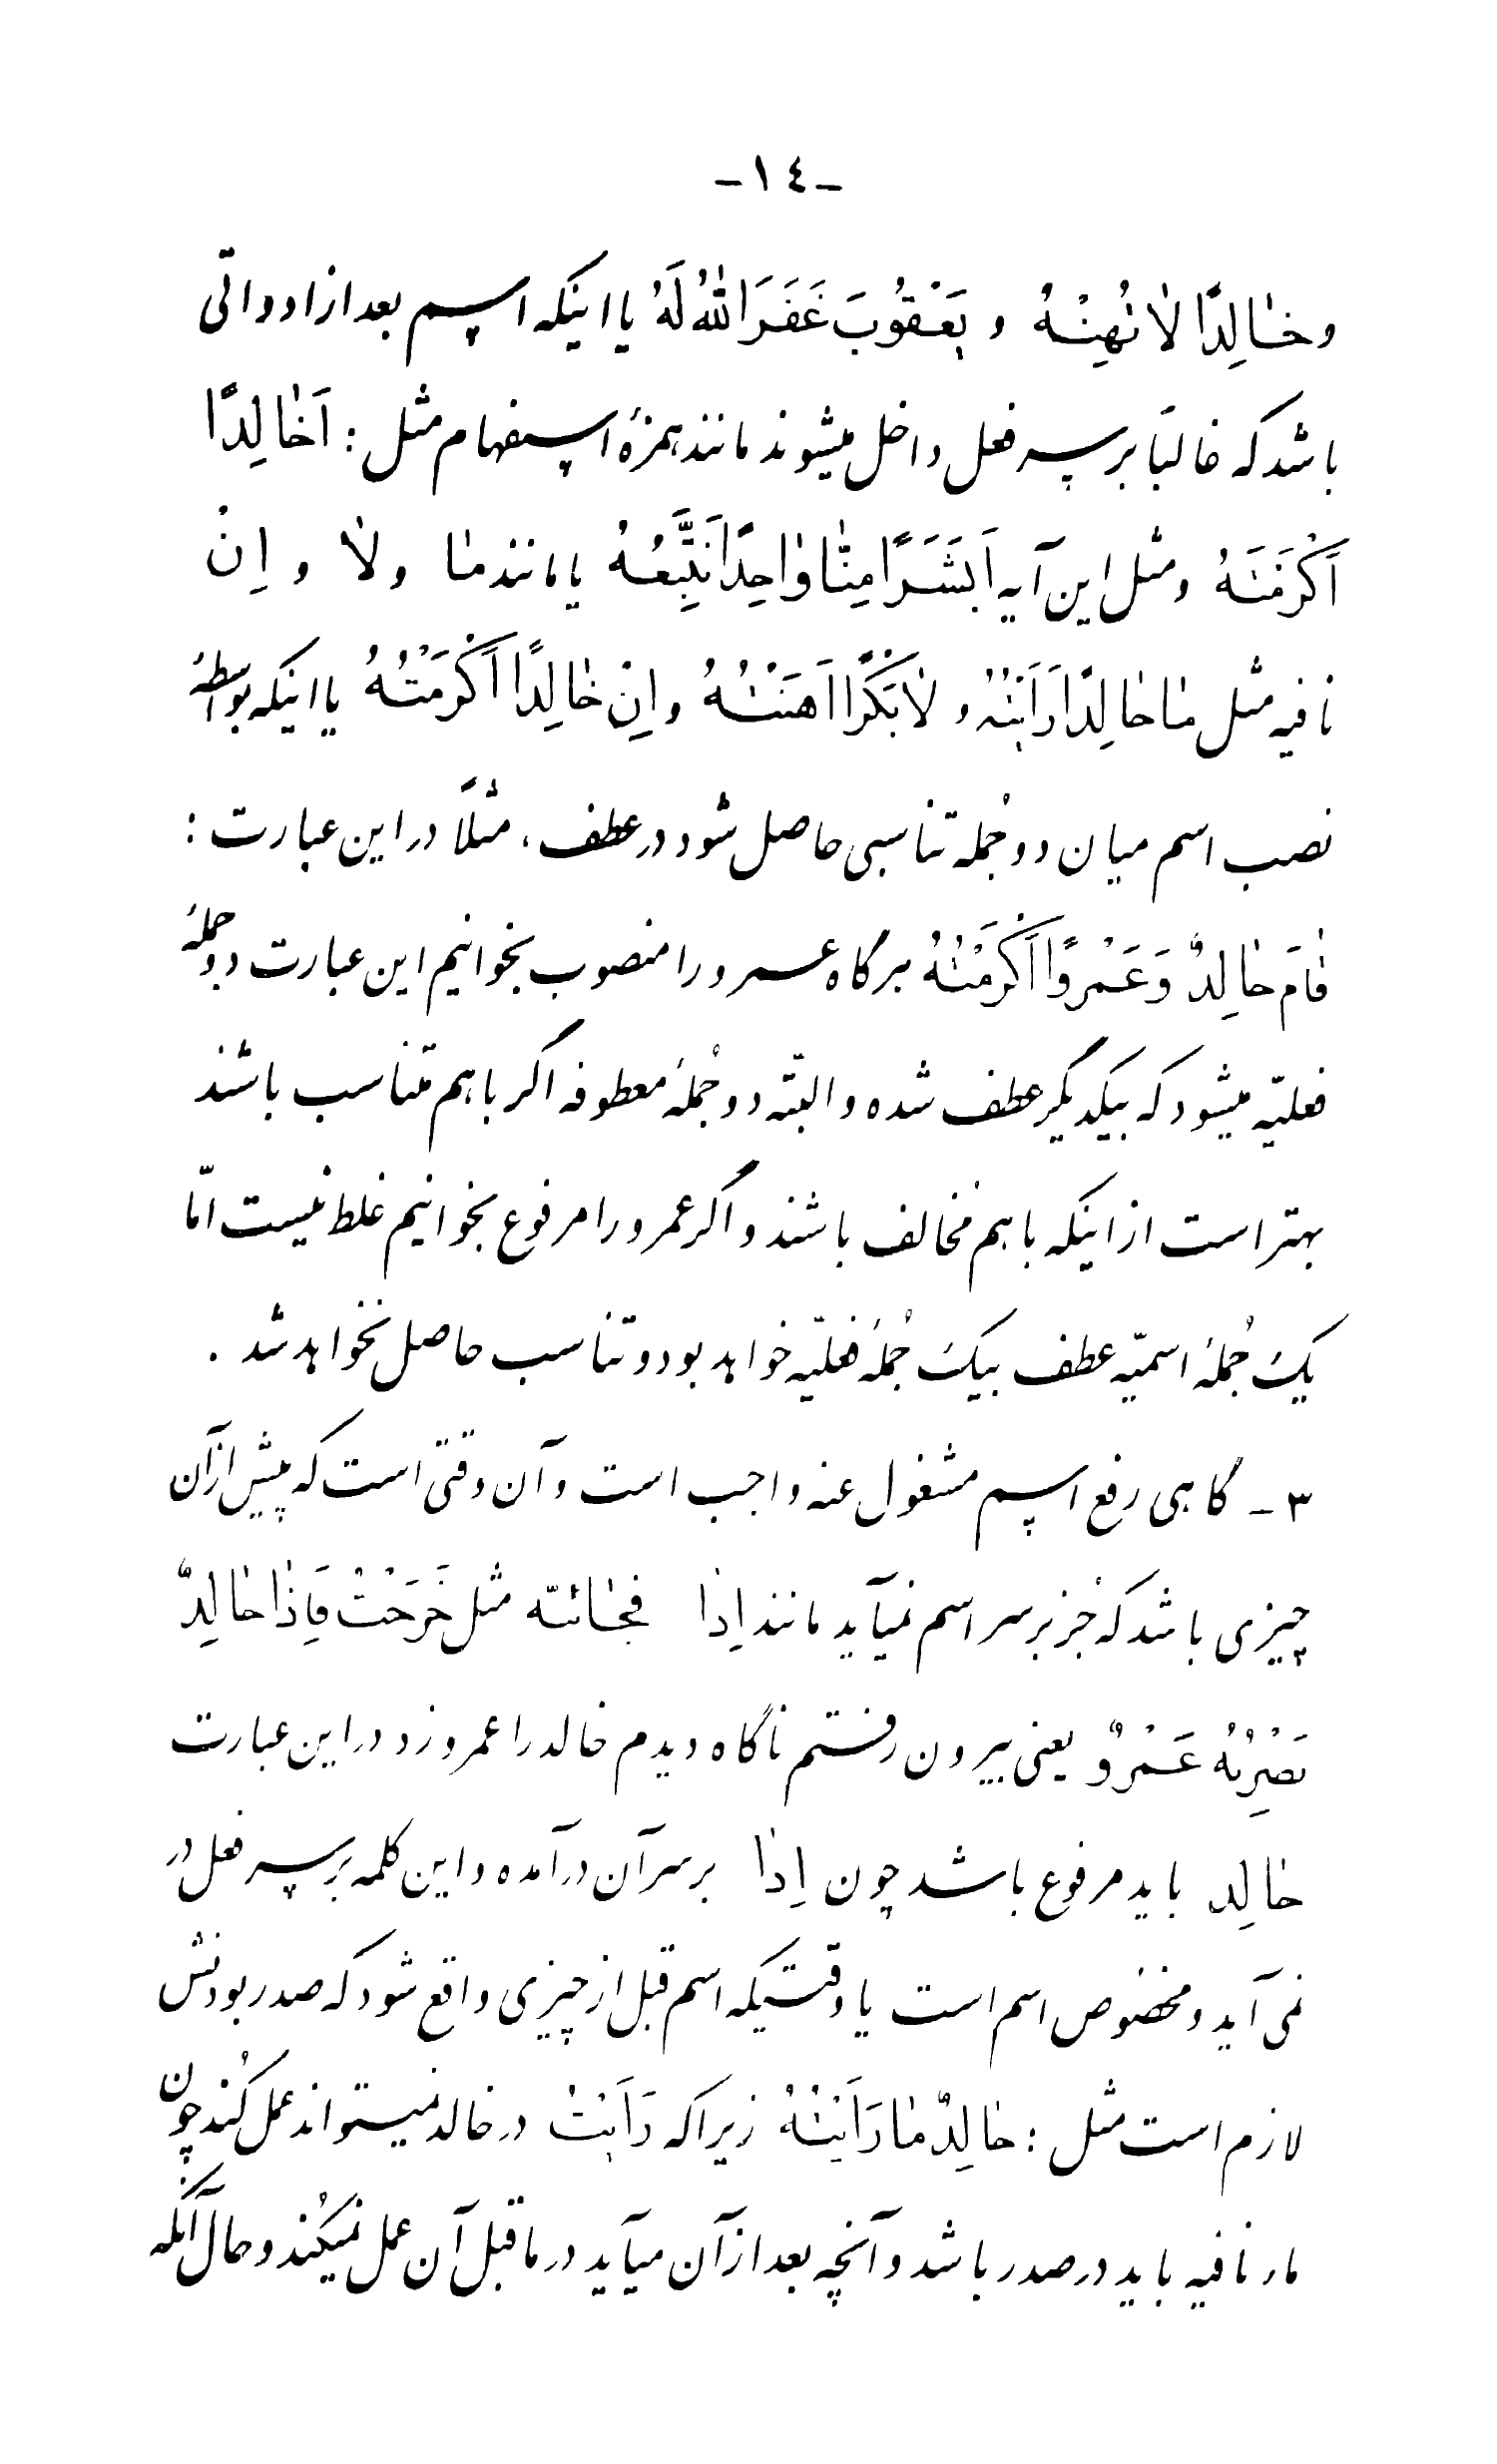 -١٤-
و خٰالِدًا لٰا تُهِنْهُ و یَعْقُوبَ غَفَرَ اللّٰهُ لَهُ یا اینکه اسم بعد از ادواتی
باشد که غالبًا بر سر فعل داخل میشوند مانند همزهٔ استفهام مثل : اَخٰالِدًا
اَکْرَمْتَهُ و مثل این آیه اَبَشَرًا مِنّٰا وٰاحِدًا نَتَّبِعُهُ یا مانند مٰا و لٰا و اِنْ
نافیه مثل مٰا خٰالِدًا رَاَیْتُهُ و لٰا بَکْرًا اَهَنْتُهُ و اِنْ خٰالِدًا اَکْرَمْتُهُ یا اینکه بواسطهٔ
نصب اسم میان دو جُمله تناسبی حاصل شود در عطف، مثلًا در این عبارت :
قٰامَ خٰالِدٌ وَ عَمْروًا اَکْرَمْتُهُ هرگاه عمرو را منصوب بخوانیم این عبارت دو جملهٔ
فعلیّه میشود که بیکدیگر عطف شده و البتّه دو جُملهٔ معطوفه اگر با هم متناسب باشند
بهتر است از اینکه با هم مخالف باشند و اگر عمرو را مرفوع بخوانیم غلط نیست امّا
یک جُملهٔ اسمیّه عطف بیک جُملهٔ فعلیّه خواهد بود و تناسب حاصل نخواهد شد .
٣ - گاهی رفع اسم مشغول عنه واجب است و آن وقتی است که پیش از آن
چیزی باشد که جُز بر سر اسم نمیآید مانند اِذٰا فجٰائیّه مثل خَرَجْتُ فَاِذٰا خٰالِدٌ
یَضْرِبُهُ عَمْرٌو یعنی بیرون رفتم ناگاه دیدم خالد را عمرو زد در این عبارت
خٰالِد باید مرفوع باشد چون اِذٰا بر سر آن درآمده و این کلمه بر سر فعل در
نمی آید و مخصُوص اسم است یا وقتیکه اسم قبل از چیزی واقع شود که صدر بودنش
لازم است مثل : خٰالِدٌ مٰا رَاَیْتُهُ زیرا که رَاَیْتُ در خالد نمیتواند عمل کُند چون
ماء نافیه باید در صدر باشد و آنچه بعد از آن میآید در ماقبل آن عمل نمیکُند و حال آنکه